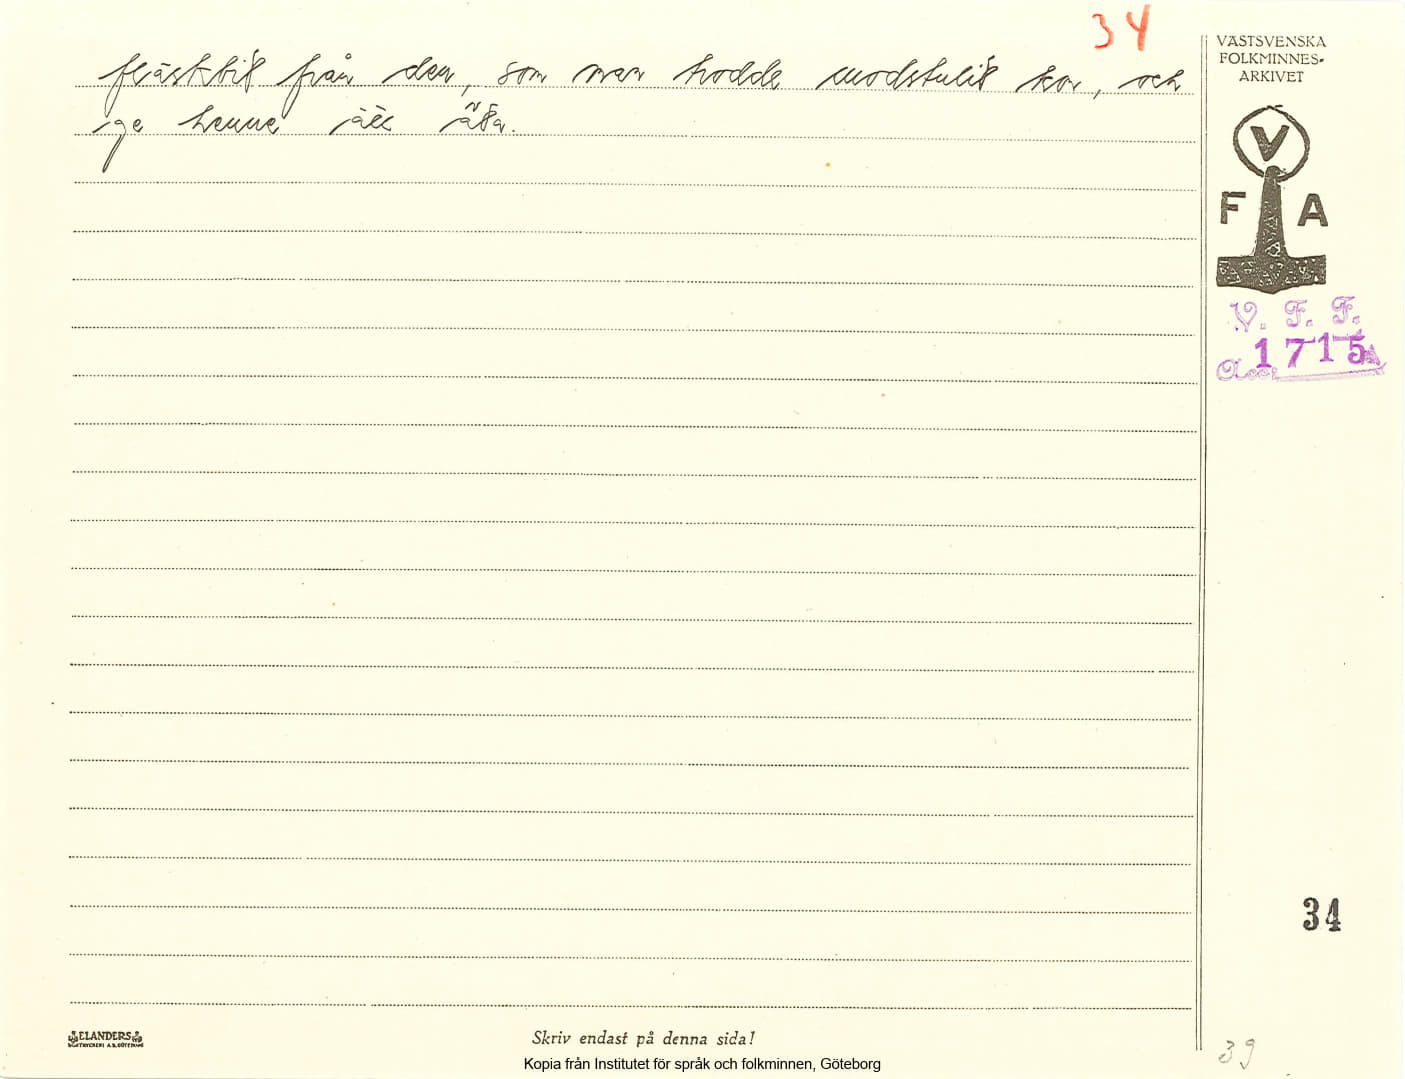 34
VÄSTSVENSKA
FOLKMINNES-
ARKIVET
fläskbit från den, som man trodde modstulit kon, och
ge henne att äta.
V
F A
V. F. F.
Acc. 1715
34
ELANDERS
BOKTRYCKERI A.B. GÖTEBORG
Skriv endast på denna sida!
Kopia från Institutet för språk och folkminnen, Göteborg
39